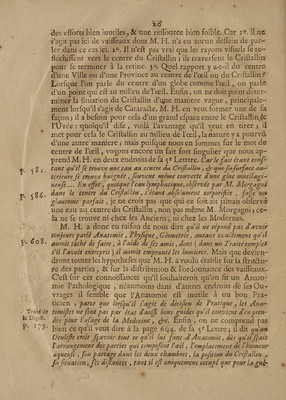 20
des efforts bien inutiles, & une ressource bien foible. Car 1°. il ne
s'agit pas ici de vaisseaux dont M. H. n'a eu aucun dessein de par-
ler dans ce cas ici. 2°. Il n'est pas vrai que les rayons visuels se re-
fléchissent vers le centre du Cristallin ; ils traversent le Cristallin
pour se terminer à la retine. 3°. Quel rapport y a-t-il du centre
d'une Ville ou d'une Province au centre de l'œil ou du Cristallin ?
Lorsque l'on parle du centre d'un globe comme l'œil, on parle
d'un point qui est au milieu de l'œil. Enfin, on ne doit point déter-
miner la situation du Cristallin d'une maniere vague, principale-
ment lorsqu'il s'agit de Cataracte. M. H. en veut former une de sa
façon ; il a besoin pour cela d'un grand espace entre le Cristallin &
l'Uvée ; quoiqu'il dise, voilà l'avantage qu'il veut en tirer ; il
met pour cela le Cristallin au milieu de l'œil, la nature y a pourvû
d'une autre maniere ; mais puisque nous en sommes sur le mot de
centre de l'œil, voyons encore un fait fort singulier que nous ap-
prend M. H. en deux endroits de sa 5e Lettre. Car le fait étant cons-
p. 581. tant qu'il se trouve une eau au centre du Cristallin, & que sa surface ex-
terne se trouve baignée, souvent même couverte d'une glue mucilagi-
neuse.... En effet, quoique l'eau lymphatique, observée par M. Morgagni
p. 586. dans le centre du Cristallin, étant absolument évaporée, soit un
glaucome parfait, je ne crois pas que qui ce soit ait jamais observé
une eau au centre du Cristallin, non pas même M. Morgagni ; ce-
la ne se trouve ni chez les Anciens, ni chez les Modernes.
M. H. a donc eu raison de nous dire qu'il ne répond pas d'avoir
toujours parlé Anatomie, Physique, Géometrie, autant exactement qu'il
p. 608. auroit tâché de faire, à l'aide de ses amis, dont (dans un Traité complet
s'il l'avoit entrepris) il auroit emprunté les lumieres. Mais que devien-
dront toutes les hypotheses que M. H. a voulu établir sur la structu-
re des parties, & sur la distribution & l'ordonnance des vaisseaux.
C'est sur ces connoissances qu'il souhaiteroit qu'on fît un Anato-
mie Pathologique ; néanmoins dans d'autres endroits de ses Ou-
vrages il semble que l'Anatomie est inutile à un bon Pra-
ticien, parce que lorsqu'il s'agit de décision de Pratique, les Ana-
tomistes ne sont pas par état d'aussi bons guides qu'il convient d'en pren-
dre pour l'usage de la Medecine, &c. Enfin, on ne comprend pas
p. 179. bien ce qu'il veut dire à la page 694. de sa 5e Lettre ; il dit qu'un
Oculiste croit sçavoir tout ce qu'il lui faut d'Anatomie, dès qu'il sçait
l'arrangement des parties qui composent l'œil, l'emplacement de l'humeur
aqueuse, son partage dans les deux chambres, la position du Cristallin,
sa situation, ses distances, tout il est uniquement occupé que pour la gué-